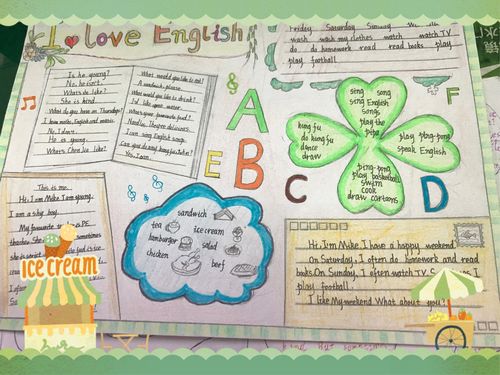 I love English
Friday Saturday Sunday
wash wash my clothes watch watch TV
do do homework read read books play
play football
Is he young?
No, he isn't.
What's he like?
She is kind.
What do you have on Thursdays?
I have maths, English and music.
No, I don't.
He is young.
What's Chen Jie like?
What would you like to eat?
A sandwich, please.
What would you like to drink?
I'd like some water.
What's your favourite food?
Noodles. They're delicious.
I can sing English songs.
Can you do any kung fu, Mike?
Yes, I can.
A
B
C
D
E
F
sing song
sing English
songs
play the
pipa
kung fu
do kung fu
dance
draw
play ping-pong
speak English
ping-pong
play basketball
swim
cook
draw cartoons
This is me.
Hi, I am Mike. I am young.
I am a shy boy.
My favourite PE
sometimes
ice cream
sandwich
tea
ice cream
hamburger
salad
chicken
beef
Hi, I'm Mike. I have a happy weekend.
On Saturday, I often do homework and read
books. On Sunday, I often watch TV. I
play football.
I like My weekend What about you?